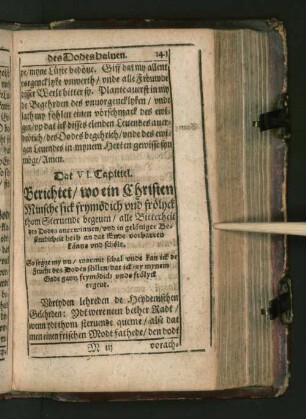 des Dodes haluen. 141
re/ myne Lüste bedöue. Giff dat my allent
vnwerth/ vnde alle Fröuwde
disser Werlt bitter sy. Plante auerst in my
de Begehrden des vnuorgencklyken/ vnde
lath my föhlen einen vörschmack des ewi-
gen/ vp dat ick disses elenden Leuendes auer-
drötich/ des Dodes begehrich/ vnde des ewi-
gen Leuendes in mynem Herten gewisse syn
möge/ Amen.
Dat VI. Capittel.
Berichtet/ wo ein Christen
Minsche sick frymödich vnd frölyck
thom Steruende begeuen/ alle Bitterheit
des Dodes auerwinnen/ vnd in gelöuiger Be-
stendicheit beth an dat Ende vorharren
könne vnd schöle.
So segge my nu/ wormit schal vnde kan ick de
frucht des Dodes stillen/ dat ick my mynem
Gade gantz frymödich vnde frölyck
ergeue.
Vortyden lehreden de Heydenischen
Gelehrden: Ydt were neen bether Radt/
wenn ydt thom steruende queme/ alse dat
men einen frischen Modt fathede/ den dodt
M iij vorach-